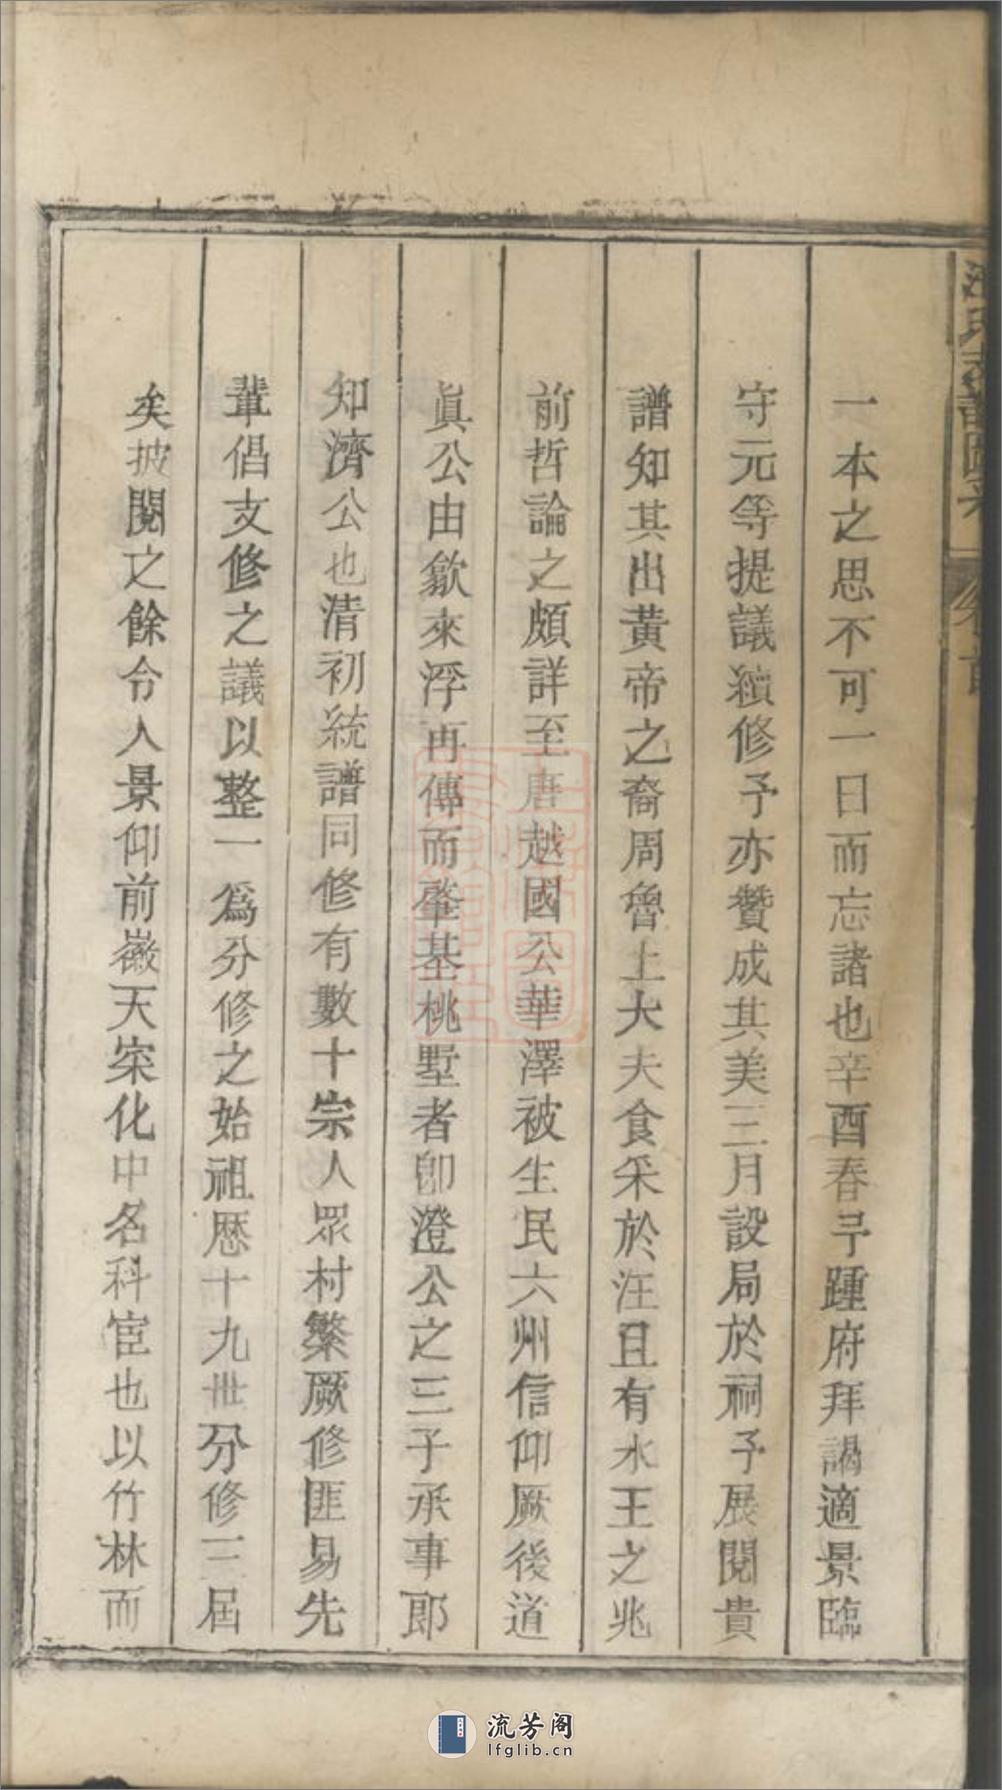 汪氏支譜
卷首
一本之思不可一日而忘諸也辛酉春予踵府拜謁適景臨
守元等提議續修予亦贊成其美三月設局於祠予展閱貴
譜知其出黃帝之裔周魯上大夫食采於汪且有水王之兆
前哲論之頗詳至唐越國公華澤被生民六州信仰厥後道
眞公由歙來浮再傳而肇基桃墅者卽澄公之三子承事郎
知濟公也清初統譜同修有數十宗人眾村繁厥修匪易先
輩倡支修之議以整一爲分修之始祖歷十九世分修三屆
矣披閱之餘令人景仰前徽天宋化中名科宦也以竹林而
流芳阁
lfglib.cn